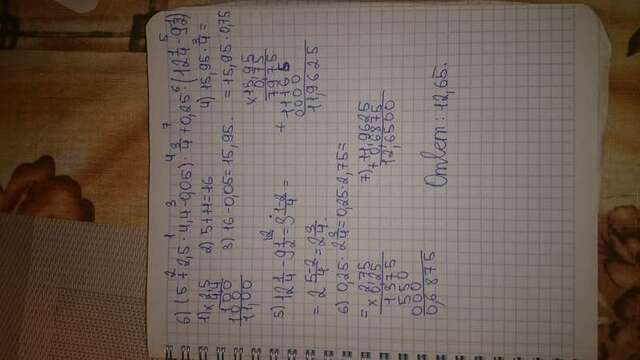 2 1 3 4 7 6 5
6) (5 + 2,5 · 4,4 - 0,05) · 3/4 + 0,25 · (12 1/4 - 9 1/2)
1) × 2,5
4,4
100
100
11,00
2) 5+11=16
3) 16-0,05=15,95.
4) 15,95 · 3/4 =
= 15,95 · 0,75
× 15,95
0,75
7975
+ 11165
0000
11,9625
5) 12 1/4 - 9 1/2 = 3 1-2/4 =
= 2 5-2/4 = 2 3/4.
6) 0,25 · 2 3/4 = 0,25 · 2,75 =
= × 2,75
0,25
1375
550
000
0,6875
7) 11,9625
+ 0,6875
12,6500
Ответ: 12,65.